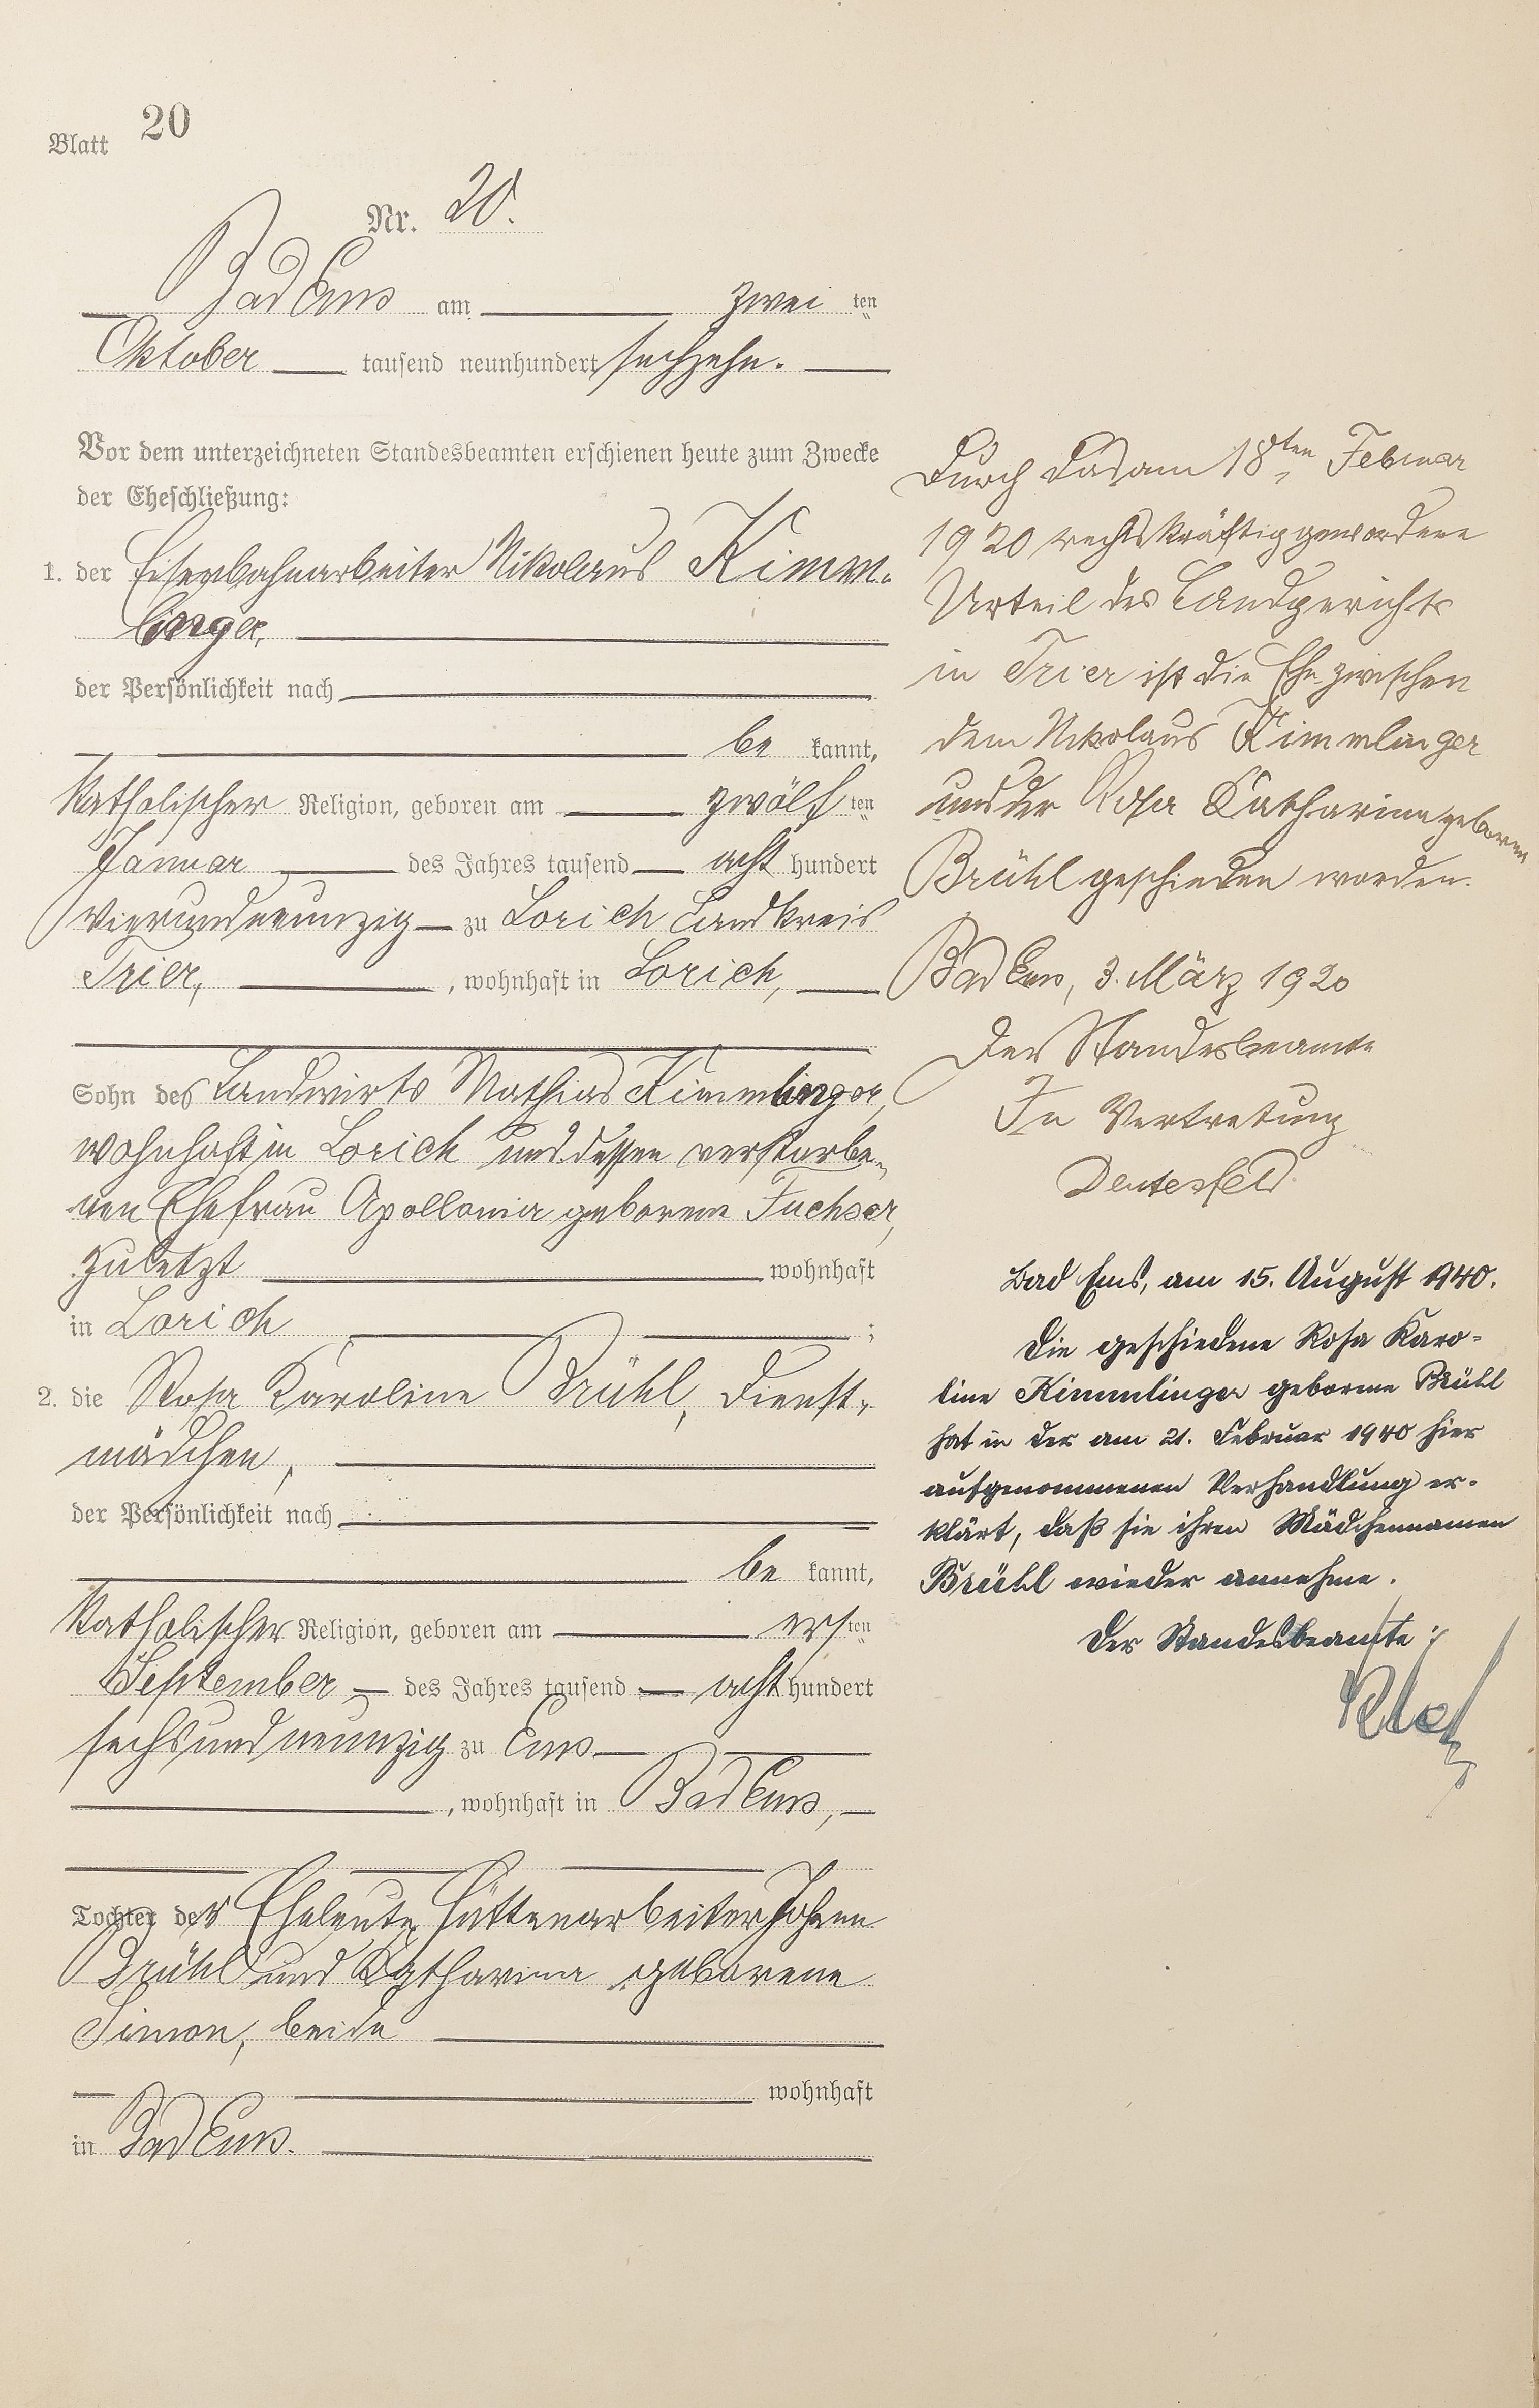 Blatt 20
Nr. 20.
Bad Ems am zwei ten
Oktober tausend neunhundert sechzehn.
Vor dem unterzeichneten Standesbeamten erschienen heute zum Zwecke
der Eheschließung:
1. der Eisenbahnarbeiter Nikolaus Kimm-
linger,
der Persönlichkeit nach
be kannt,
katholischer Religion, geboren am zwölf ten
Januar des Jahres tausend acht hundert
vierundneunzig zu Lorich Landkreis
Trier, , wohnhaft in Lorich,
Sohn des Landwirts Mathias Kimmlinger,
wohnhaft in Lorich und dessen verstorbe-
nen Ehefrau Apollonia geborene Fuchser,
zuletzt wohnhaft
in Lorich ;
2. die Rosa Karoline Brühl, Dienst-
mädchen,
der Persönlichkeit nach
be kannt,
katholischer Religion, geboren am ers ten
September des Jahres tausend acht hundert
sechsundneunzig zu Ems
, wohnhaft in Bad Ems,
Tochter der Eheleute Hüttenarbeiter Johann
Brühl und Katharina geborene
Simon, beide
wohnhaft
in Bad Ems.
Durch das am 18ten Februar
1920 rechtskräftig gewordene
Urteil des Landgerichts
in Trier ist die Ehe zwischen
dem Nikolaus Kimmlinger
und der Rosa Katharina geborene
Brühl geschieden worden.
Bad Ems, 3. März 1920
Der Standesbeamte
In Vertretung
Deutesfeld
Bad Ems, am 15. August 1940.
Die geschiedene Rosa Karo-
line Kimmlinger geborene Brühl
hat in der am 21. Februar 1940 hier
aufgenommenen Verhandlung er-
klärt, daß sie ihren Mädchennamen
Brühl wieder annehme.
Der Standesbeamte: